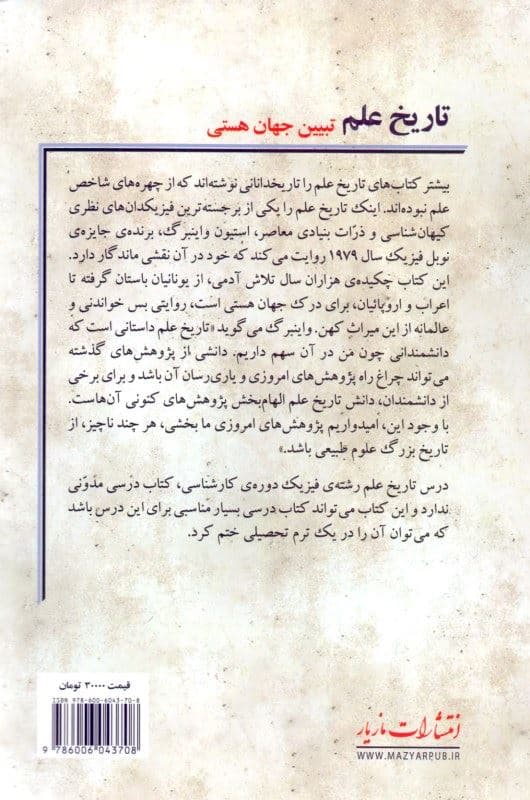 تاریخ علم تبیین جهان هستی
بیشتر کتاب‌های تاریخ علم را تاریخدانانی نوشته‌اند که از چهره‌های شاخص
علم نبوده‌اند. اینک تاریخ علم را یکی از برجسته‌ترین فیزیکدان‌های نظری
کیهان‌شناسی و ذرّات بنیادی معاصر، استیون واینبرگ، برنده‌ی جایزه‌ی
نوبل فیزیک سال ۱۹۷۹ روایت می‌کند که خود در آن نقشی ماندگار دارد.
این کتاب چکیده‌ی هزاران سال تلاش آدمی، از یونانیان باستان گرفته تا
اعراب و اروپائیان، برای درک جهان هستی است، روایتی بس خواندنی و
عالمانه از این میراث کهن. واینبرگ می‌گوید «تاریخ علم داستانی است که
دانشمندانی چون من در آن سهم داریم. دانشی از پژوهش‌های گذشته
می‌تواند چراغ راه پژوهش‌های امروزی و یاری‌رسان آن باشد و برای برخی
از دانشمندان، دانش تاریخ علم الهام‌بخش پژوهش‌های کنونی آن‌هاست.
با وجود این، امیدواریم پژوهش‌های امروزی ما بخشی، هر چند ناچیز، از
تاریخ بزرگ علوم طبیعی باشد.»
درس تاریخ علم رشته‌ی فیزیک دوره‌ی کارشناسی، کتاب درسی مدوّنی
ندارد و این کتاب می‌تواند کتاب درسی بسیار مناسبی برای این درس باشد
که می‌توان آن را در یک ترم تحصیلی ختم کرد.
قیمت ۳۰۰۰۰ تومان
ISBN 978-600-6043-70-8
9 786006 043708
انتشارات مازیار
WWW.MAZYARPUB.IR